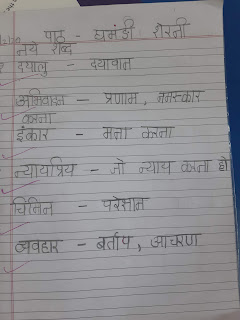 पाठ - घमंडी शेरनी
नये शब्द
दयालु - दयावान
अभिवादन - प्रणाम, नमस्कार
करना
इंकार - मना करना
न्यायप्रिय - जो न्याय करता हो
चिंतित - परेशान
व्यवहार - बर्ताव, आचरण